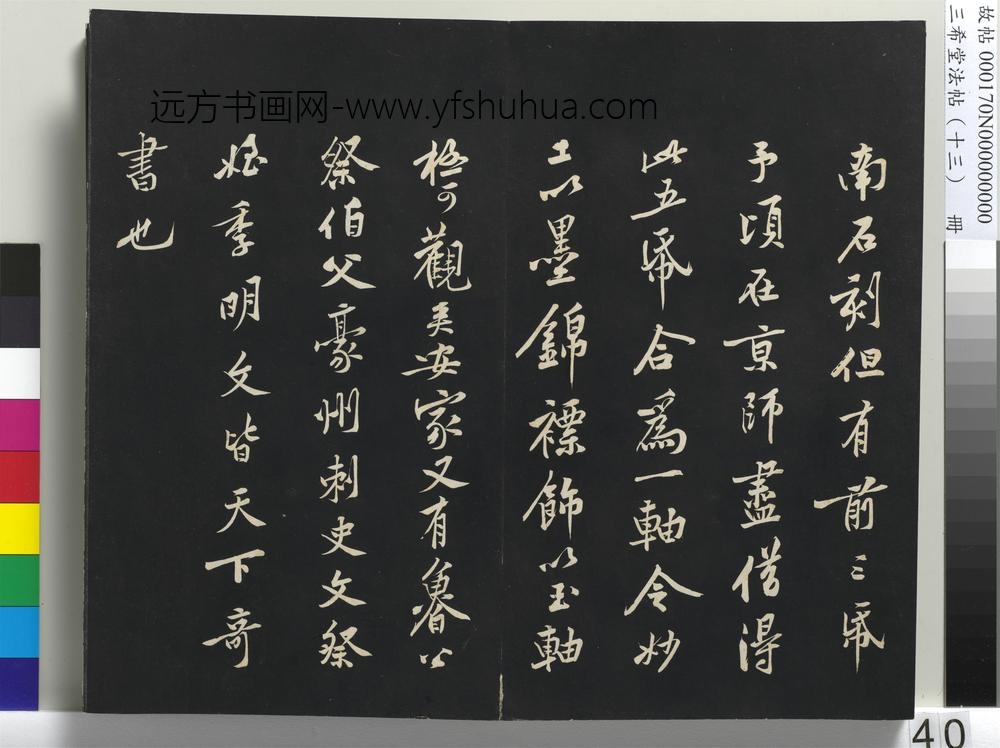 南石刻但有前三㡧
予頃在京師盡借得
此五㡧合為一軸令妙
工以墨錦褾飾以玉軸
極可觀矣安家又有魯公
祭伯父豪州刺史文祭
姪季明文皆天下奇
書也
远方书画网-www.yfshuhua.com
故帖 000170N000000000
三希堂法帖（十三） 冊
40